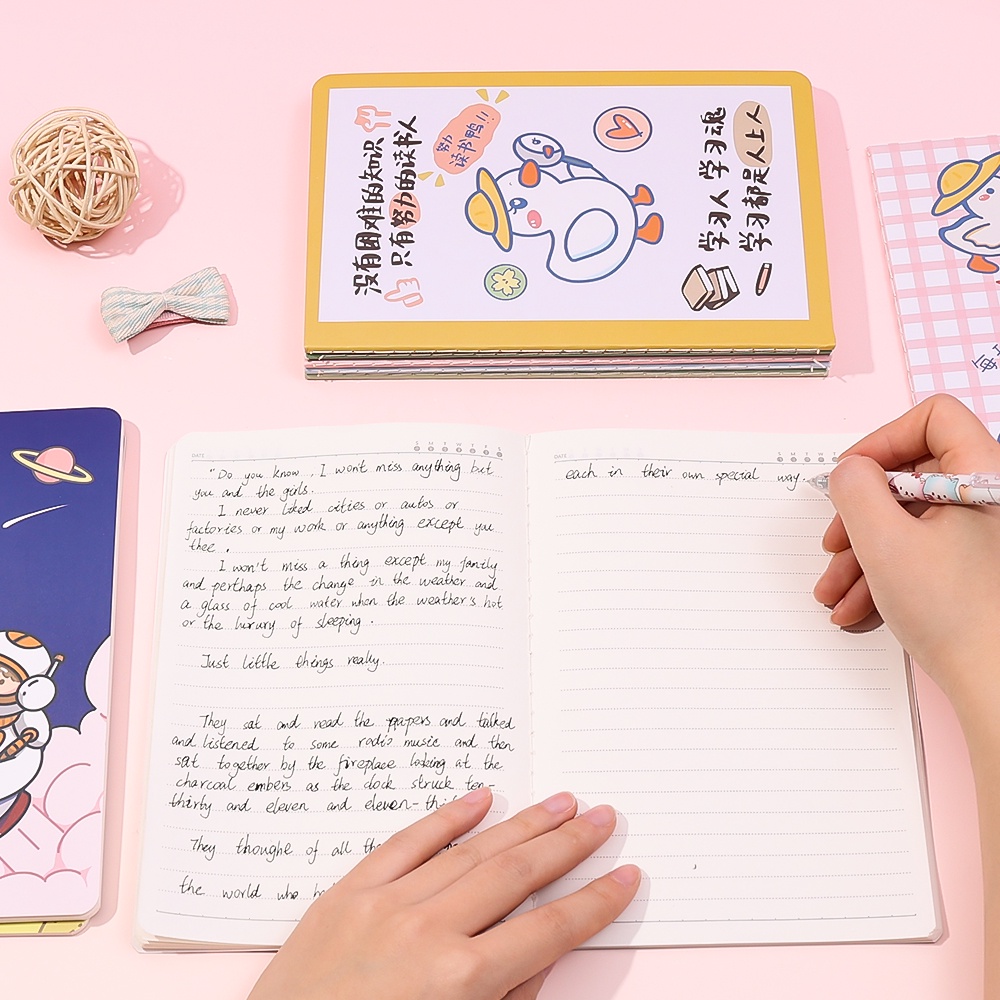 没有困难的知识
只有努力的读书人
努力
读书鸭!!
学习人 学习魂
学习都是人上人
DATE
S M T W T F S
"Do you know, I won't miss anything but
you and the girls.
I never liked cities or autos or
factories or my work or anything except you
thee.
I won't miss a thing except my family
and perthaps the change in the weather and
a glass of cool water when the weather's hot
or the luxury of sleeping.
Just little things really.
They sat and read the papers and talked
and listened to some radio music and then
sat together by the fireplace looking at the
charcoal embers as the clock struck ten-
thirty and eleven and eleven-thi
They thought of all the
the world who
DATE
S M T W
each in their own special way.